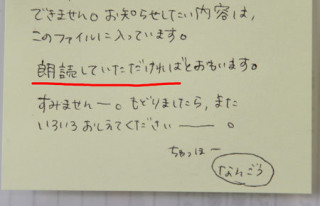 できません。お知らせしたい内容は、
このファイルに入っています。
朗読していただければとおもいます。
すみませんー。もどりましたら、また
いろいろおしえてください――。
ちゅっはー
なんごろ